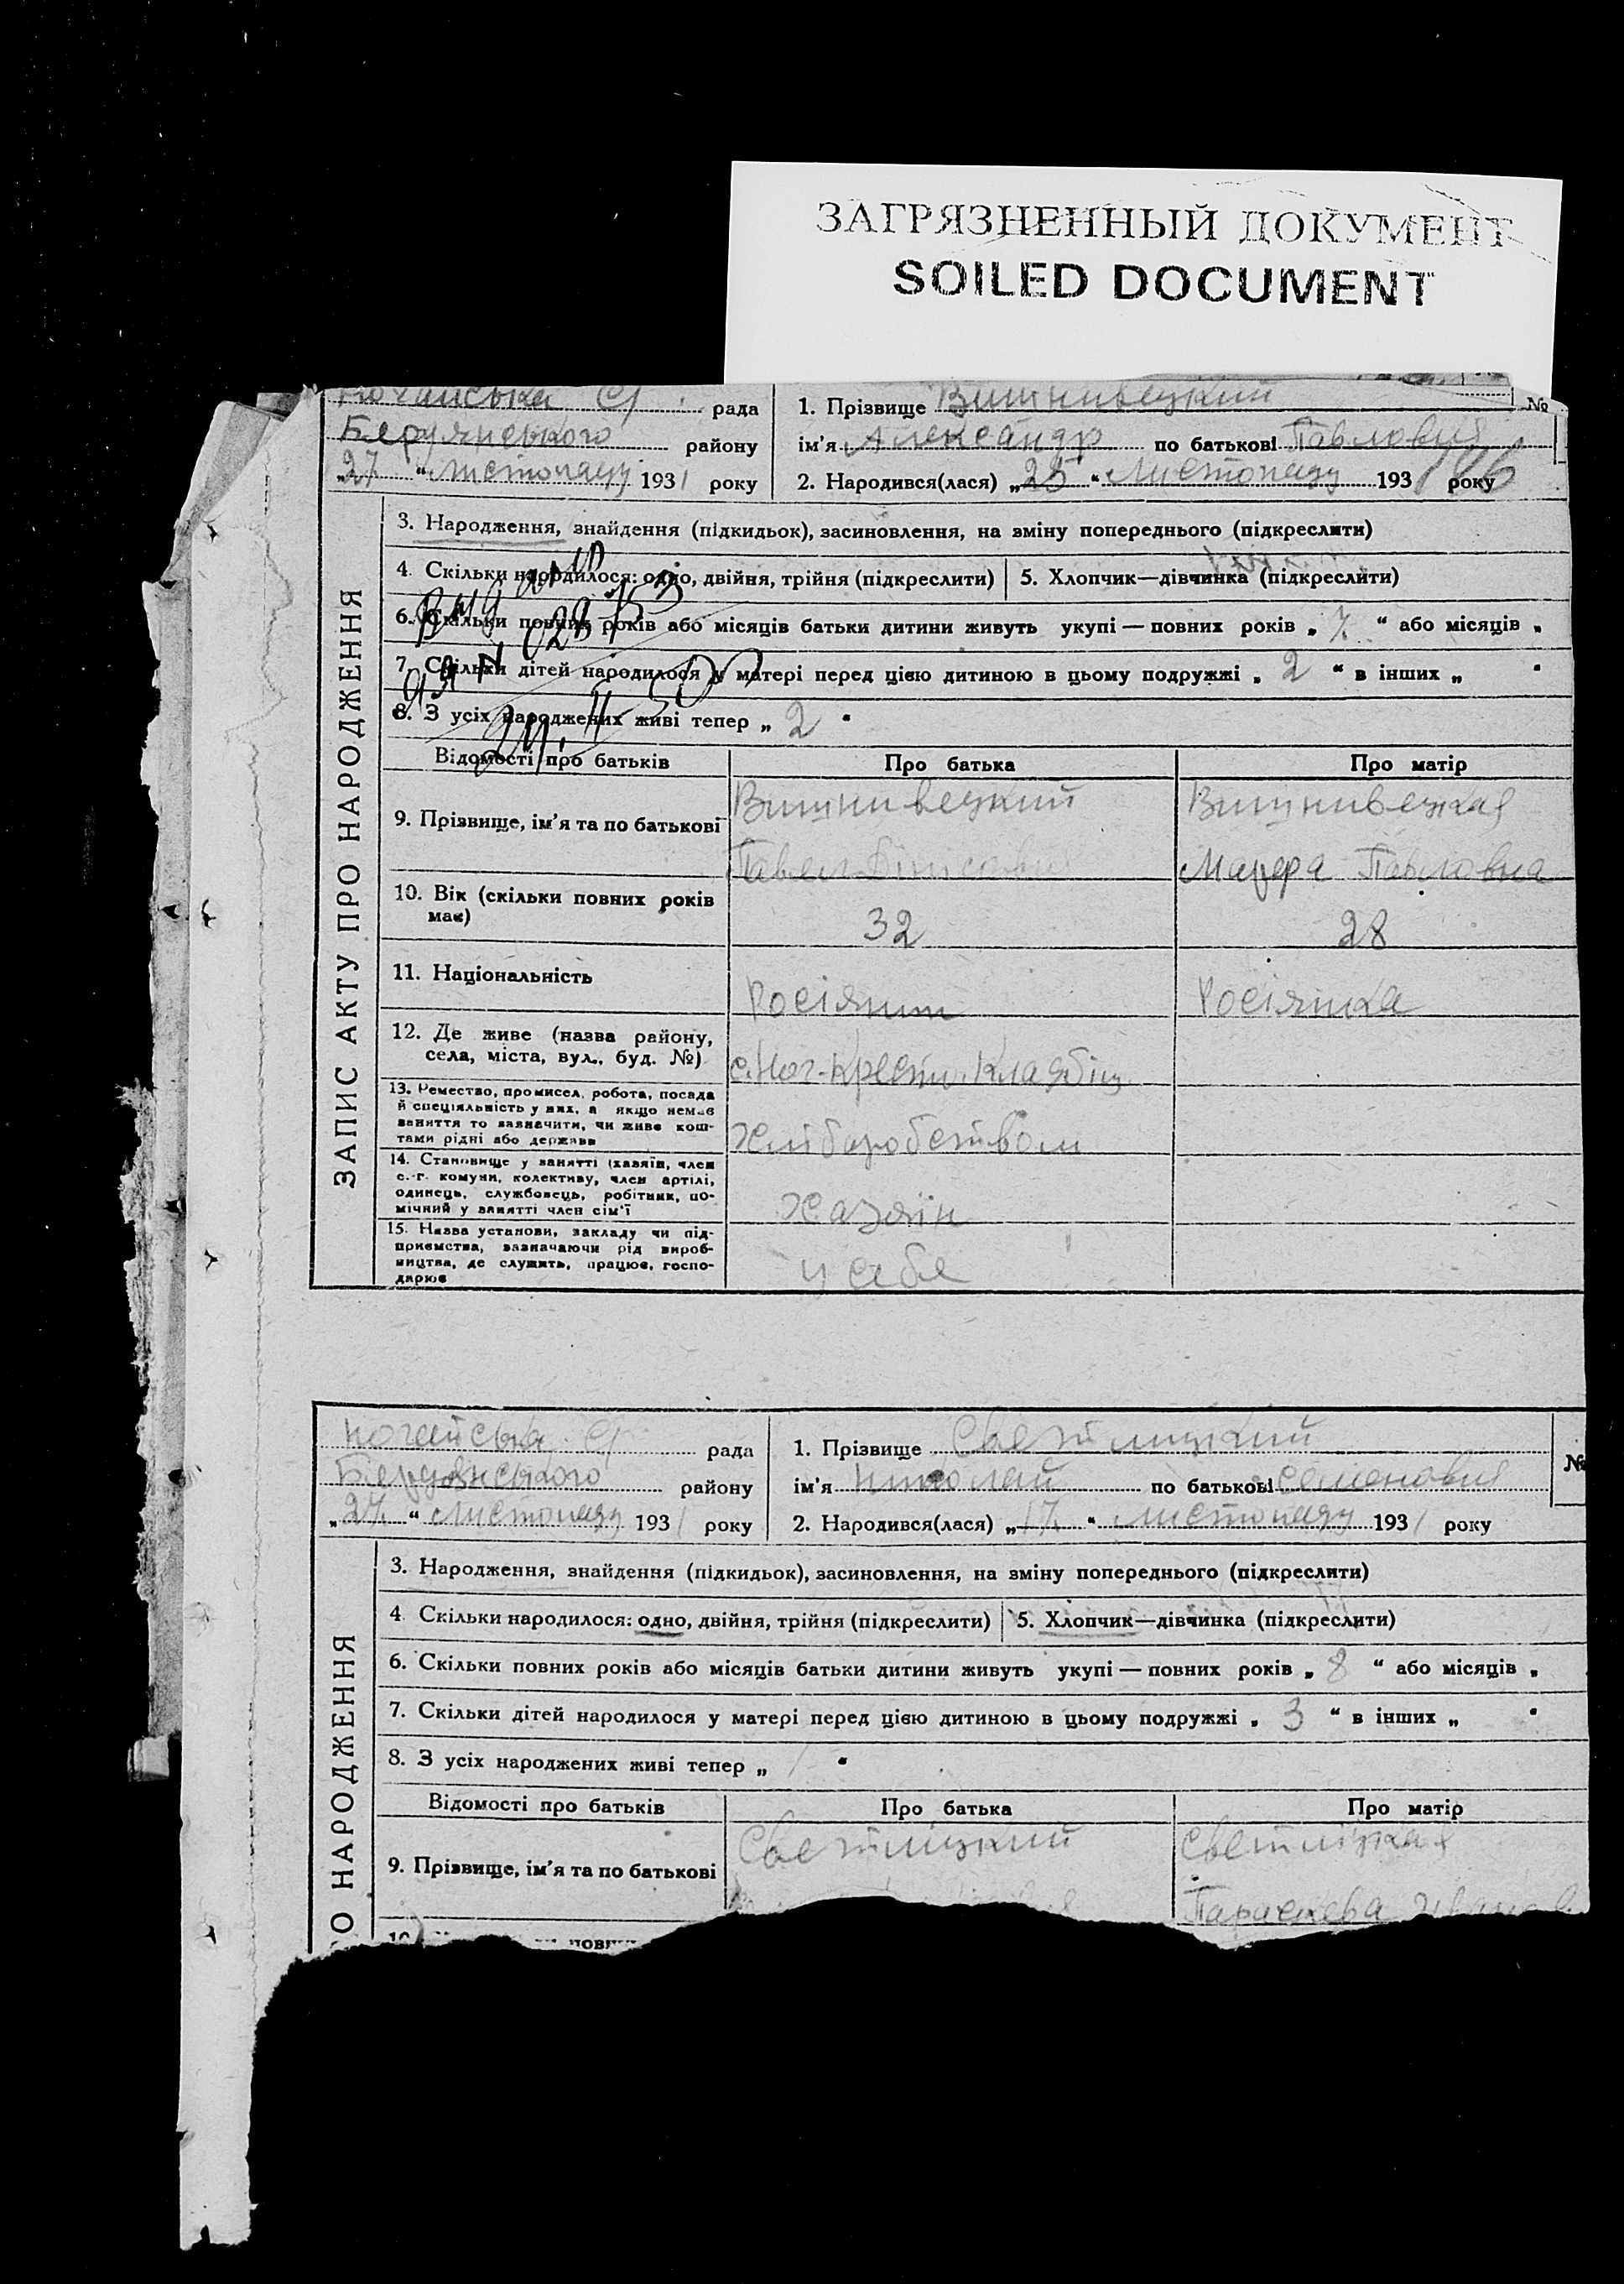 ЗАГРЯЗНЕННЫЙ ДОКУМЕНТ
SOILED DOCUMENT
рада
Бердянського району
„27“ листопаду 1931 року
1. Прізвище Вишнивецкий №
ім’я Александр по батькові Павлович
2. Народився(лася) „25“ листопаду 193 року
ЗАПИС АКТУ ПРО НАРОДЖЕННЯ
3. Народження, знайдення (підкидьок), засиновлення, на зміну попереднього (підкреслити)
4. Скільки народилося: одно, двійня, трійня (підкреслити) 5. Хлопчик—дівчинка (підкреслити)
6. Скільки повних років або місяців батьки дитини живуть укупі — повних років „7“ або місяців „
7. Скільки дітей народилося у матері перед цією дитиною в цьому подружжі „2“ в інших „ “
8. З усіх народжених живі тепер „2“
Відомості про батьків Про батька Про матір
9. Прізвище, ім’я та по батькові Вишнивецкий Вишнивецкая
Павел Павловна
10. Вік (скільки повних років має) 32 28
11. Національність Росіянин Росіянка
12. Де живе (назва району,
села, міста, вул., буд. №)
13. Ремество, промисел, робота, посада
й спеціяльність у них, а якщо немає
заняття то зазначити, чи живе кош-
тами рідні або держави Хліборобством
14. Становище у занятті (хазяїн, член
с.-г. комуни, колективу, член артілі,
одинець, службовець, робітник, по-
мічний у занятті член сім’ї Хазяїн
15. Назва установи, закладу чи під-
приємства, зазначаючи рід вироб-
ництва, де служить, працює, госпо-
дарює у себе
Ногайська с/ рада
Бердянського району
„27“ листопаду 1931 року
1. Прізвище Светлицкий №
ім’я Николай по батькові Семенович
2. Народився(лася) „17“ листопаду 1931 року
О НАРОДЖЕННЯ
3. Народження, знайдення (підкидьок), засиновлення, на зміну попереднього (підкреслити)
4. Скільки народилося: одно, двійня, трійня (підкреслити) 5. Хлопчик—дівчинка (підкреслити)
6. Скільки повних років або місяців батьки дитини живуть укупі — повних років „8“ або місяців „
7. Скільки дітей народилося у матері перед цією дитиною в цьому подружжі „3“ в інших „ “
8. З усіх народжених живі тепер „ “
Відомості про батьків Про батька Про матір
9. Прізвище, ім’я та по батькові Светліцкий Светліцкая
Параскева